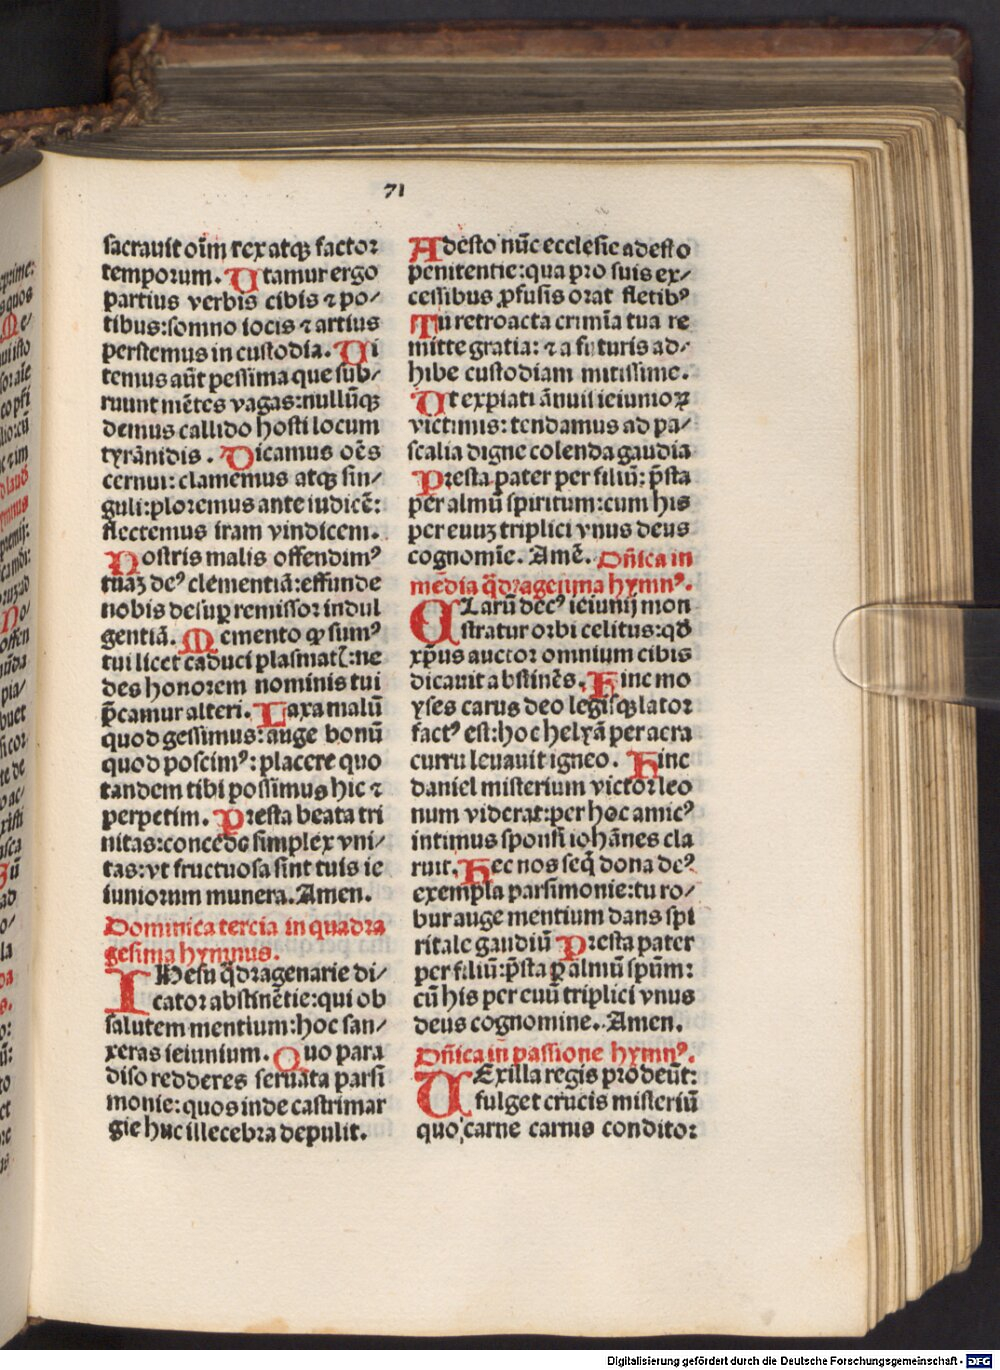 71
sacrauit oīm rex atqȝ factor
temporum. Utamur ergo
partius verbis cibis ⁊ po⸗
tibus:somno iocis ⁊ artius
perstemus in custodia. Ui
temus aūt pessima que sub⸗
ruunt mētes vagas:nullūqȝ
demus callido hosti locum
tyrānidis. Dicamus oēs
cernui: clamemus atqȝ sin⸗
guli:ploremus ante iudicē:
flectemus iram vindicem.
Nostris malis offendimꝰ
tuāȝ deꝰ clementiā:effunde
nobis desuꝑ remissor indul
gentiā. Memento ꝙ sumꝰ
tui licet caduci plasmatꝭ:ne
des honorem nominis tui
p̄camur alteri. Laxa malū
quod gessimus: auge bonū
quod poscimꝰ: placere quo
tandem tibi possimus hic ⁊
perpetim. Presta beata tri
nitas:concede simplex vni⸗
tas:vt fructuosa sint tuis ie
iuniorum munera. Amen.
Dominica tercia in quadra
gesima hymnus.
IHesu q̄dragenarie di⸗
cator abstinētie:qui ob
salutem mentium:hoc san⸗
xeras ieiunium. Quo para
diso redderes seruata parsi
monie:quos inde castrimar
gie huc illecebra depulit.
Adesto nūc ecclesie adesto
penitentie:qua pro suis ex⸗
cessibus ꝓfusis orat fletibꝰ
Tu retroacta crimīa tua re
mitte gratia: ⁊ a futuris ad⸗
hibe custodiam mitissime.
Ut expiati ānui ieiunioꝝ
victimis: tendamus ad pa⸗
scalia digne colenda gaudia
Presta pater per filiū: p̄sta
per almū spiritum:cum his
per euuȝ triplici vnus deus
cognomīe. Amē. Dn̄ica in
media q̄dragesima hymnꝰ.
CLarū decꝰ ieiunij mon
stratur orbi celitus:qd̄
xp̄us auctor omnium cibis
dicauit abstinēs. Hinc mo
yses carus deo legisqȝ lator
factꝰ est:hoc helyā per aera
curru leuauit igneo. Hinc
daniel misterium victor leo
num viderat:per hoc amicꝰ
intimus sponsi iohānes cla
ruit. Hec nos seq̄ dona deꝰ
exempla parsimonie:tu ro⸗
bur auge mentium dans spi
ritale gaudiū Presta pater
per filiū:p̄sta ꝑ almū spūm:
cū his per euū triplici vnus
deus cognomine. Amen.
Dn̄ica in passione hymnꝰ.
UExilla regis prodeūt:
fulget crucis misteriū
quo carne carnis conditor
Digitalisierung gefördert durch die Deutsche Forschungsgemeinschaft - DFG